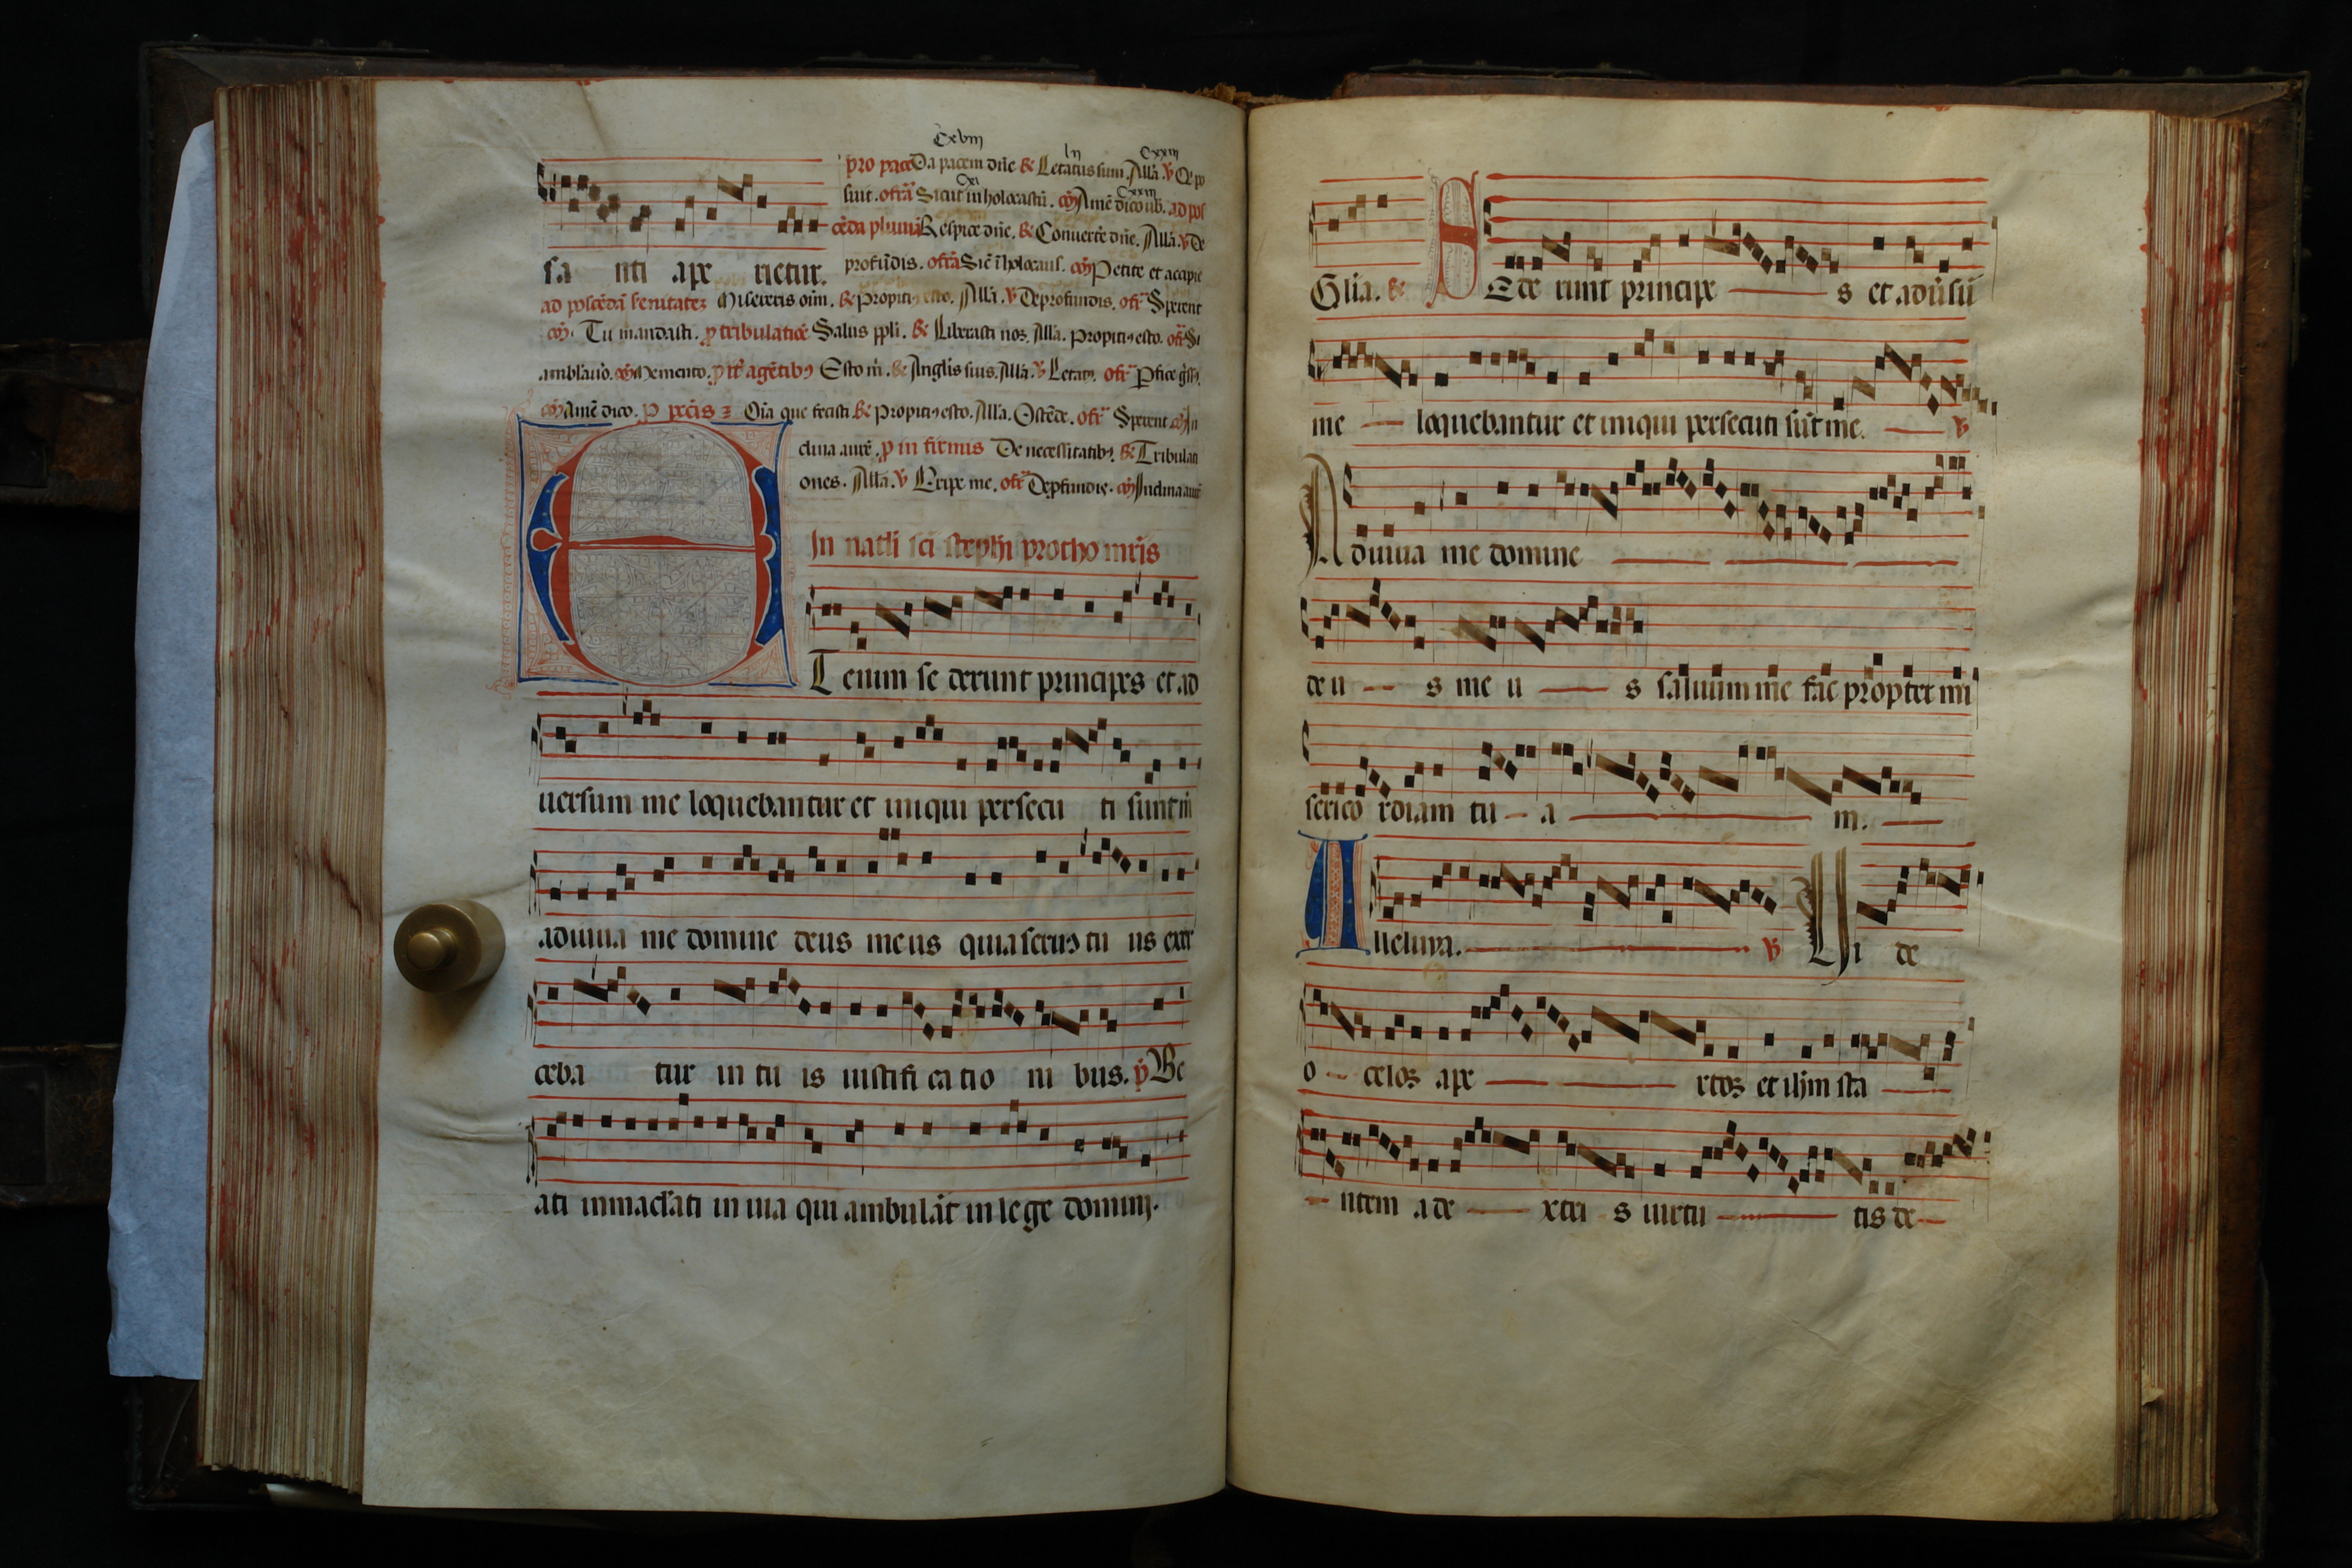 Cxvııı
pro pace Da pacem dn̄e ℞ Letatus sum. All̄a. ℣ Q̄i po
suit. offr̄a Sicut in holocaustū. co᷑ Amē dico uob̄. ad pos
cēdā pluuiā Respice dn̄e. ℞ Conuerte dn̄e. All̄a. ℣ De
sa nti ape rietur.
profūdis. offr̄a Sic̄ ī holocaus. co᷑ Petite et accipie
ad poscēdā serenitatez Misereris oīm. ℞ Propitiꝰ esto. All̄a. ℣ De profundis. off̄r Sperent
co᷑. Tu mandasti. p tribulatiōe Salus ppli. ℞ Liberasti nos. All̄a. Propitiꝰ esto. off̄r Si
ambl̄auō. co᷑ Memento. p it̄ agētibꝰ Esto m̄. ℞ Angl̄is suis. All̄a. ℣ Letatꝰ. off̄r Pfice gr̄ss.
co᷑ Amē dico. p pctīs Oīa que fecisti ℞ Propitiꝰ esto. All̄a. Ostēde. off̄r Sperent co᷑ In
clina aurē. p infirmis De necessitatibꝰ. ℞ Tribulati
ones. All̄a. ℣ Eripe me. off̄r De pfundis. co᷑ Inclina aurē
In natl̄i sc̄i steph̄i protho mr̄is
ET enim se derunt principes et ad
uersum me loquebantur et iniqui persecu ti sunt m̄
adiuua me domine deus meus quia seruꝰ tu us exer
ceba tur in tu is iustifi ca tio ni bus. p̄s Be
ati inmacl̄ati in uia qui ambulāt in lege domini.
Gl̄ia. ℞ SEde runt principe s et adūsū
me loquebantur et iniqui persecuti sūt me. ℣
Adiuua me domine
de u s me u s saluum me fac propter mi
serico rdiam tu a m.
Alleluya. ℣ Ui de
o celos ape rtos et ih̄m sta
ntem a de xtri s uirtu tis de